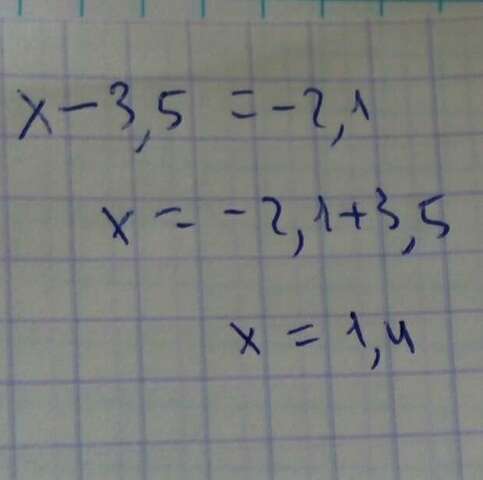 x - 3,5 = -2,1
x = -2,1 + 3,5
x = 1,4